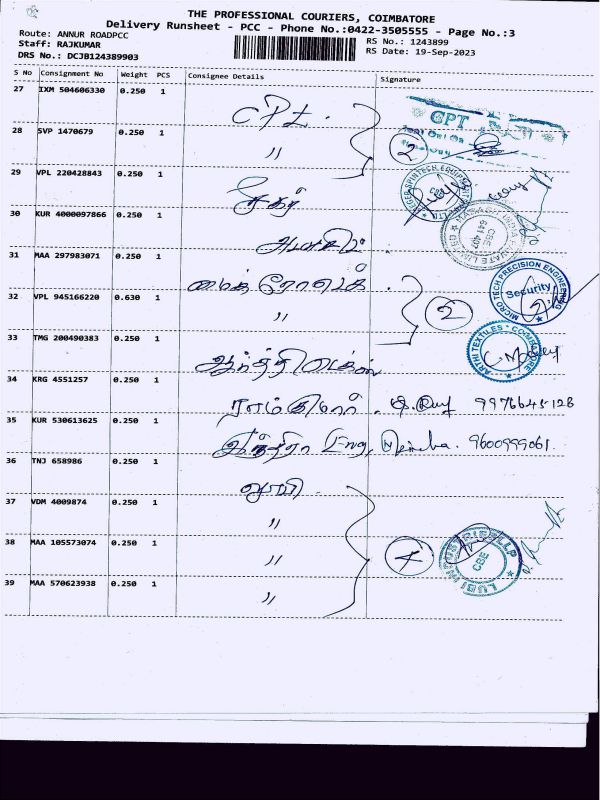 THE PROFESSIONAL COURIERS, COIMBATORE
Delivery Runsheet - PCC - Phone No.:0422-3505555 - Page No.:3
Route: ANNUR ROADPCC
RS No.: 1243899
Staff: RAJKUMAR
RS Date: 19-Sep-2023
DRS No.: DCJB124389903
S No Consignment No Weight PCS Consignee Details Signature
27 IXM 504606330 0.250 1 CPT.
28 SVP 1470679 0.250 1 〃 2 CPT
29 VPL 220428843 0.250 1 சேகர்
30 KUR 4000097866 0.250 1
31 MAA 297983071 0.250 1 மைக்ரோடெக்
32 VPL 945166220 0.630 1 〃 2 MICRO TECH PRECISION ENGINEERING Security
33 TMG 200490383 0.250 1 ஆர்த்தி டெக்ஸ் ARTHI TEXTILES * COIMBATORE
34 KRG 4551257 0.250 1 ராம்கிஷோர். 9976645128
35 KUR 530613625 0.250 1 இந்திரா Eng, 9600999061.
36 TNJ 658986 0.250 1 லூபி.
37 VDM 4009874 0.250 1 〃
38 MAA 105573074 0.250 1 〃 4 LUBI INDUSTRIES LLP CBE
39 MAA 570623938 0.250 1 〃